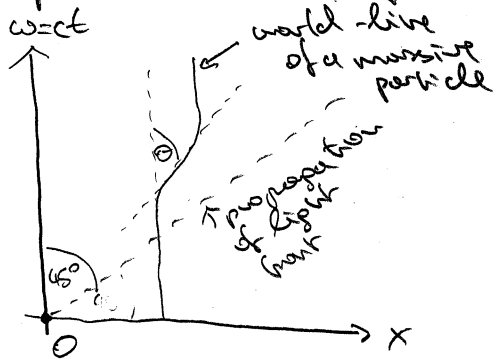 w=ct
world-line
of a massive
particle
θ
propagation
of light
front
45°
O
x